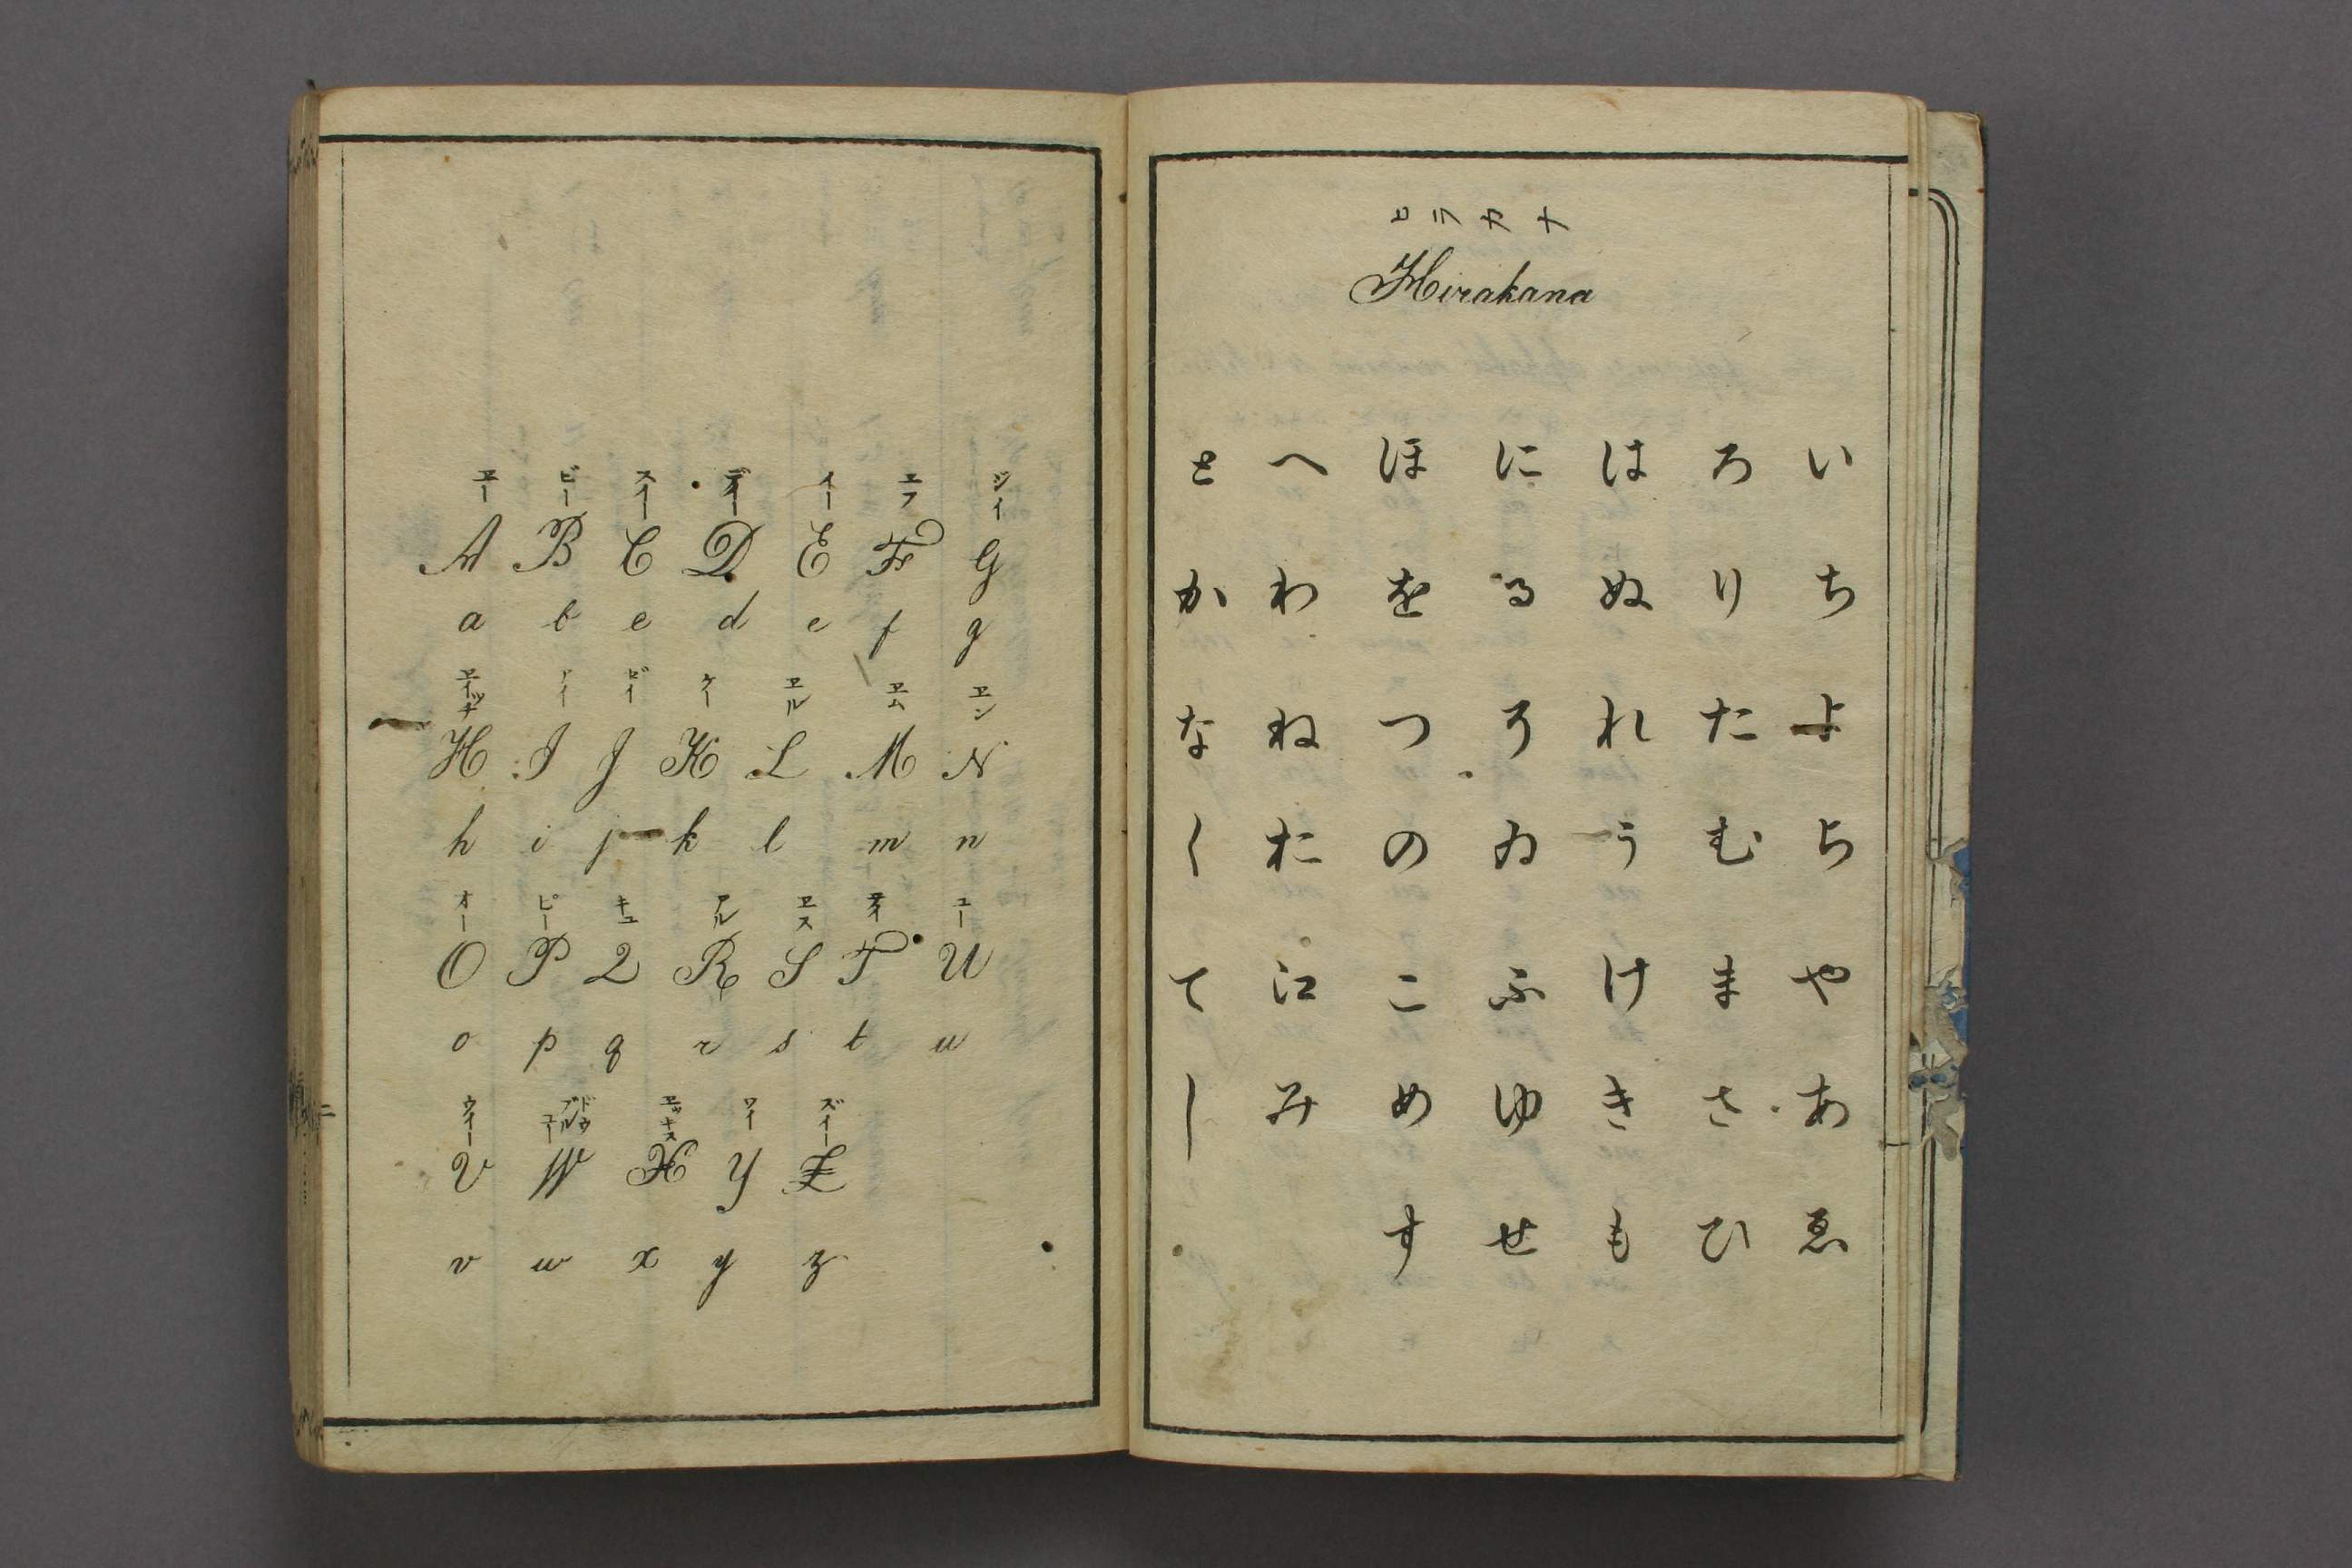 ヒラカナ
Hirakana
いろはにほへと
ちりぬるをわか
よたれそつねな
らむうゐのおく
やまけふこ江て
あさきゆめみし
ゑひもせす
ヱー ビー スイー デイー イー エフ ジイ
A B C D E F G
a b c d e f g
ヱイッチ アイ ゼイ ケー ヱル ヱム ヱン
H I J K L M N
h i j k l m n
オー ピー キュ アル ヱス テイ ユー
O P Q R S T U
o p q r s t u
ウイー ドウブルユー ヱッキス ワイ ズイー
V W X Y Z
v w x y z